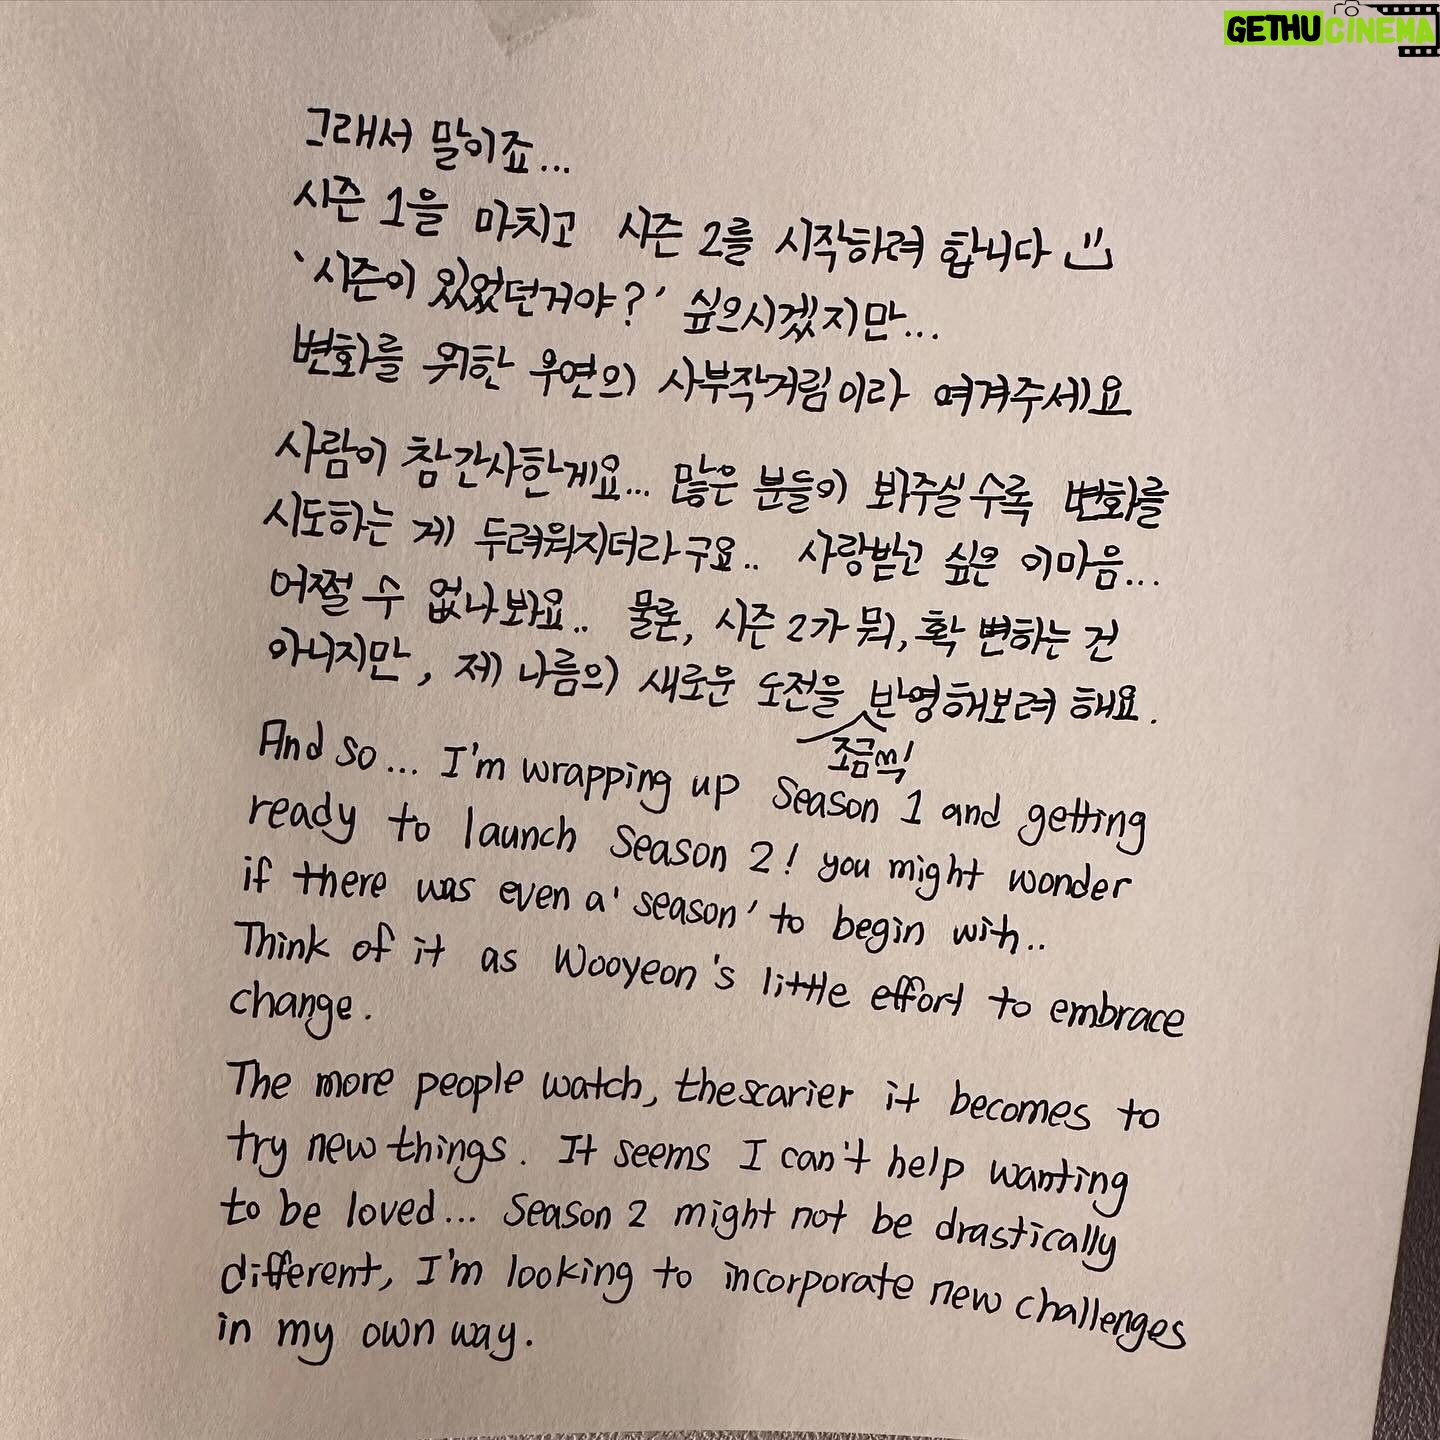 GETHUCINEMA
그래서 말이죠...
시즌 1을 마치고 시즌 2를 시작하려 합니다
'시즌이 있었던거야?' 싶으시겠지만...
변화를 위한 우연의 사부작거림이라 여겨주세요
사람이 참 간사한게요... 많은 분들이 봐주실수록 변화를
시도하는 게 두려워지더라구요.. 사랑받고 싶은 이마음...
어쩔 수 없나봐요.. 물론, 시즌 2가 뭐, 확 변하는 건
아니지만, 제 나름의 새로운 도전을 반영해보려 해요.
조금씩!
And so... I'm wrapping up Season 1 and getting
ready to launch Season 2! you might wonder
if there was even a 'season' to begin with..
Think of it as Wooyeon's little effort to embrace
change.
The more people watch, the scarier it becomes to
try new things. It seems I can't help wanting
to be loved... Season 2 might not be drastically
different, I'm looking to incorporate new challenges
in my own way.